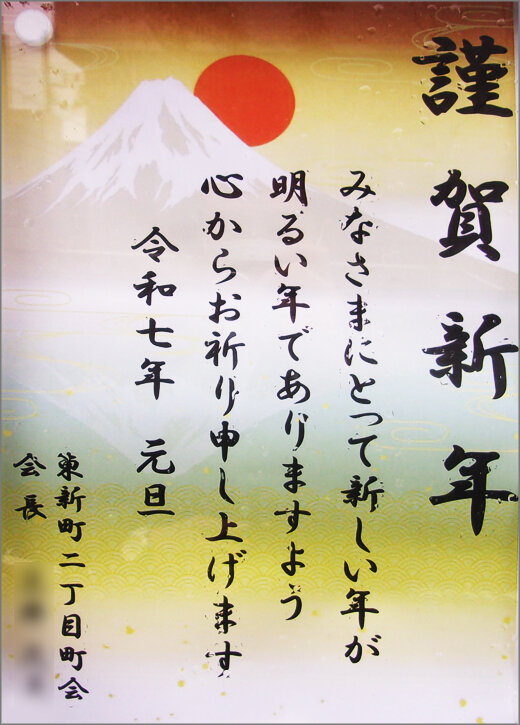 謹賀新年
みなさまにとって新しい年が
明るい年でありますよう
心からお祈り申し上げます
令和七年 元旦
東新町二丁目町会
会長